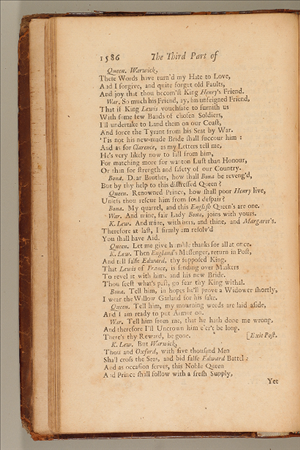 1586 The Third Part of
Queen. Warwick,
These Words have turn'd my Hate to Love,
And I forgive, and quite forget old Faults,
And joy that thou becom'st King Henry's Friend.
War. So much his Friend, ay, his unfeigned Friend,
That if King Lewis vouchsafe to furnish us
With some few Bands of chosen Soldiers,
I'll undertake to Land them on our Coast,
And force the Tyrant from his Seat by War.
'Tis not his new-made Bride shall succour him:
And as for Clarence, as my Letters tell me,
He's very likely now to fall from him,
For matching more for wanton Lust than Honour,
Or than for strength and safety of our Country.
Bona. Dear Brother, how shall Bona be reveng'd,
But by thy help to this distressed Queen?
Queen. Renowned Prince, how shall poor Henry live,
Unless thou rescue him from foul despair?
Bona. My quarrel, and this English Queen's are one.
War. And mine, fair Lady Bona, joins with yours.
K. Lew. And mine, with hers, and thine, and Margaret's.
Therefore at last, I firmly am resolv'd
You shall have Aid.
Queen. Let me give humble thanks for all at once.
K. Lew. Then England's Messenger, return in Post,
And tell false Edward, thy supposed King,
That Lewis of France, is sending over Maskers
To revel it with him, and his new Bride.
Thou seest what's past, go fear thy King withal.
Bona. Tell him, in hopes he'll prove a Widower shortly,
I wear the Willow Garland for his sake.
Queen. Tell him, my mourning weeds are laid aside,
And I am ready to put Armor on.
War. Tell him from me, that he hath done me wrong,
And therefore I'll Uncrown him e'er't be long.
There's thy Reward, be gone. [Exit Post.
K. Lew. But Warwick,
Thou and Oxford, with five thousand Men
Shall cross the Seas, and bid false Edward Battel:
And as occasion serves, this Noble Queen
And Prince shall follow with a fresh Supply.
Yet